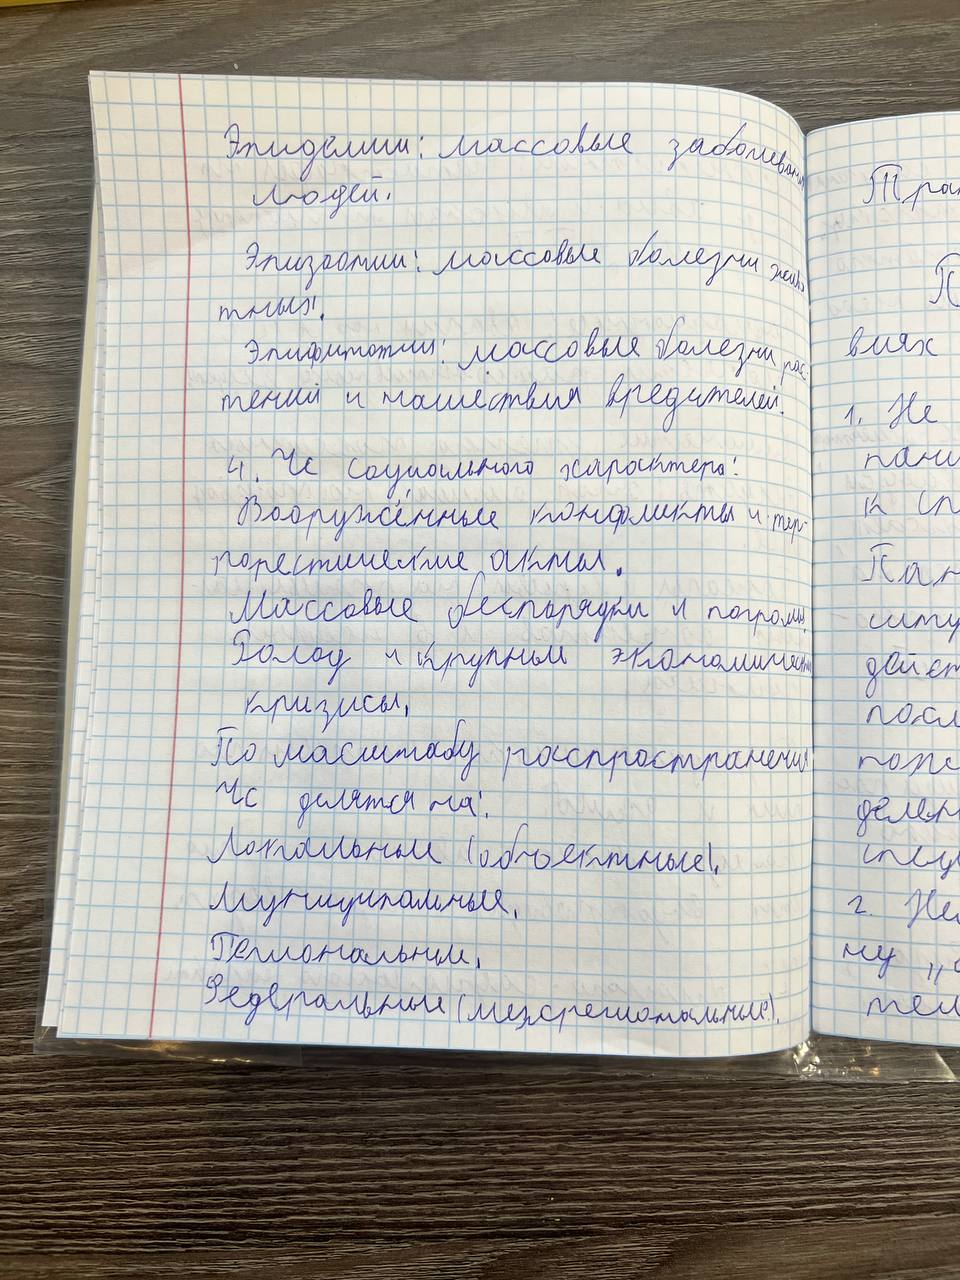 Эпидемии: массовые заболевания
людей.
Эпизоотии: массовые болезни живо
тных.
Эпифитотии: массовые болезни рас-
тений и нашествия вредителей.
4. Чс социального характера:
Вооружённые конфликты и тер-
рорестические акты.
Массовые беспорядки и погромы,
Голод и крупные экономические
кризисы,
По масштабу распространения
Чс делятся на:
Локальные (объектные),
Муниципальные,
Региональные,
Федеральные (межрегиональные),
Тра
П
виях
1. Не
пани
к сп
Пан
шту
дейст
посл
пож
делен
спец
2. Не
ну „
тел